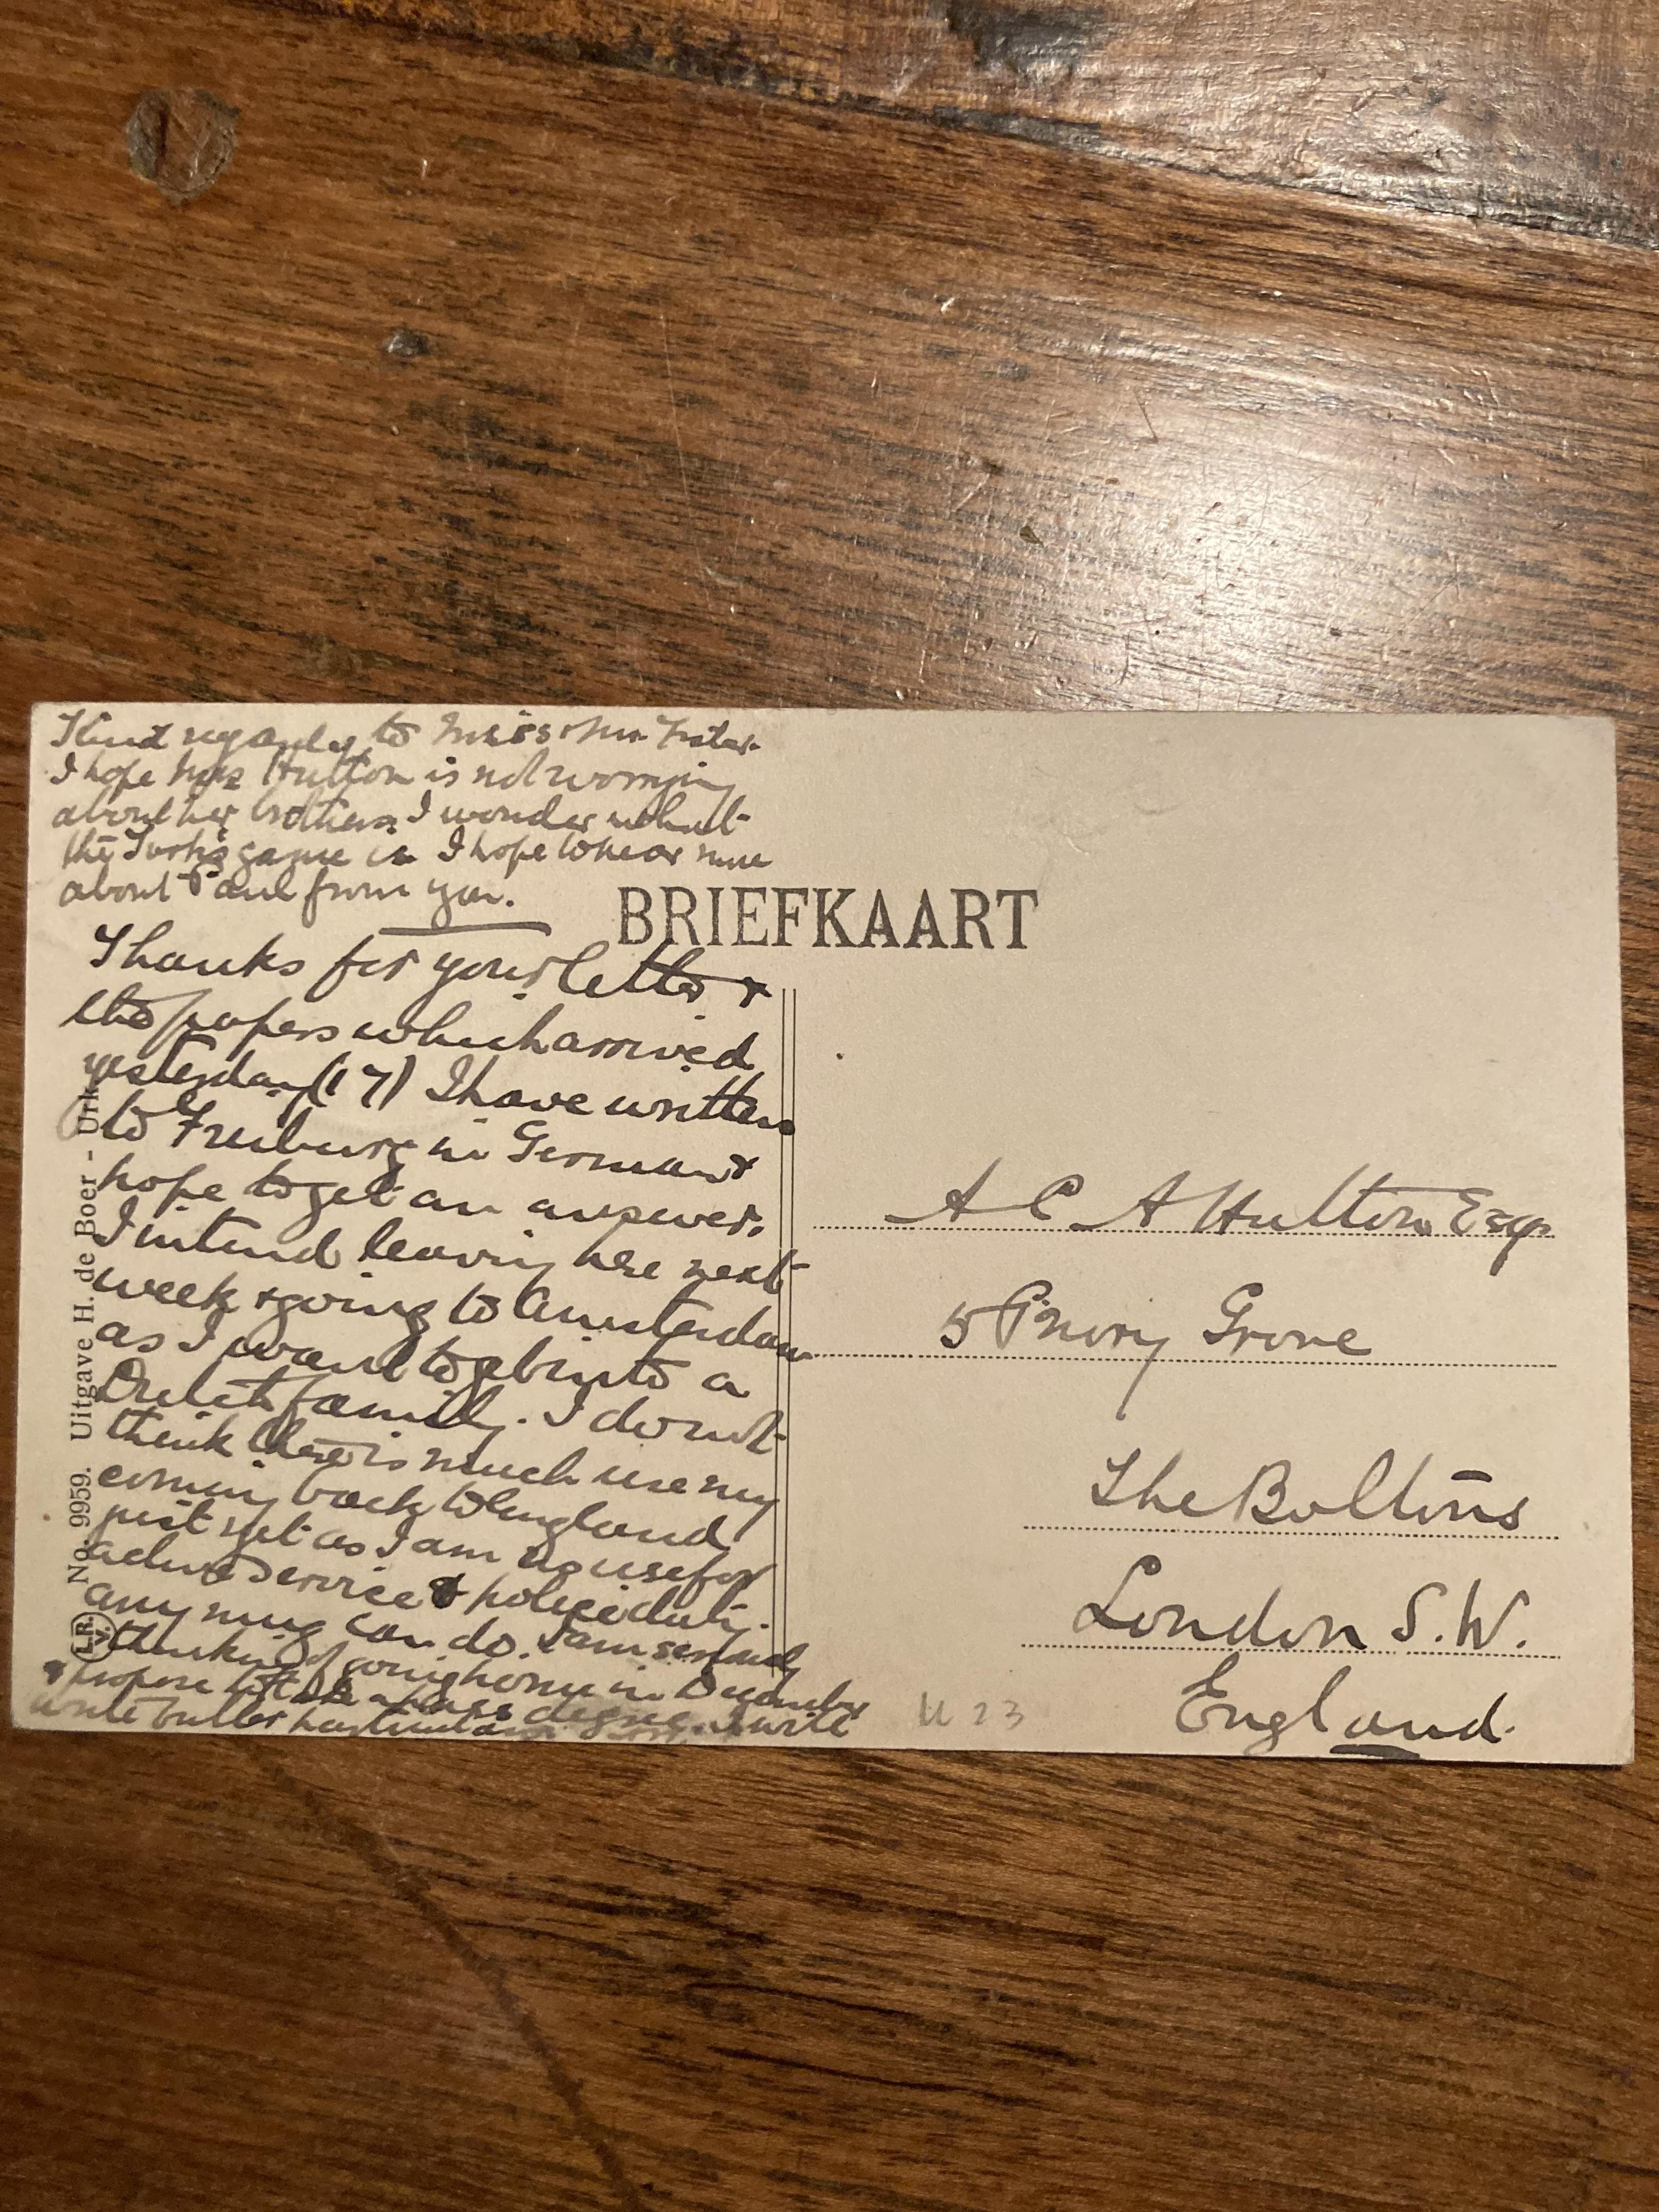 Kind regards to Miss & Mr
I hope Mrs Hutton is not worrying
about her brothers. I wonder what
the Turks game is I hope to hear more
about Paul from you.
BRIEFKAART
Thanks for your letter &
the papers which arrived
yesterday (17) I have written
to Freiburg in German &
hope to get an answer.
I intend leaving here next
week & going to Amsterdam
as I want to get into a
Dutch family. I do not
think there is much use my
coming back to England
just yet as I am no use for
active service & police duty
any mug can do. I am
thinking of going home in December
& propose to a pass degree. I will
write fuller
No. 9959. Uitgave H. de Boer - Urk
L.R.
A C A Hutton Esq
5 Priory Grove
The Boltons
London S.W.
England.
U 23